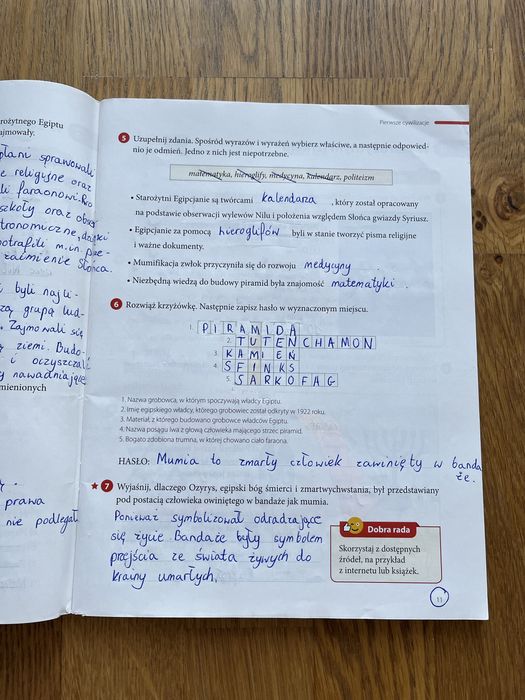 rożytnego Egiptu
ajmowały.
płani sprawowali
e religijne oraz
li faraonowi. Pro
szkoły oraz obser
tronomiczne, dzięki
potrafili m.in. prze-
zaćmienie Słońca.
i byli najli-
zą grupą lud-
. Zajmowali się
ziemi. Budo-
i oczyszczali
y nawadniające
mienionych
prawa
nie podlegał
Pierwsze cywilizacje
5 Uzupełnij zdania. Spośród wyrazów i wyrażeń wybierz właściwe, a następnie odpowied-
nio je odmień. Jedno z nich jest niepotrzebne.
matematyka, hieroglify, medycyna, kalendarz, politeizm
• Starożytni Egipcjanie są twórcami kalendarza, który został opracowany
na podstawie obserwacji wylewów Nilu i położenia względem Słońca gwiazdy Syriusz.
• Egipcjanie za pomocą hieroglifów byli w stanie tworzyć pisma religijne
i ważne dokumenty.
• Mumifikacja zwłok przyczyniła się do rozwoju medycyny.
• Niezbędną wiedzą do budowy piramid była znajomość matematyki.
6 Rozwiąż krzyżówkę. Następnie zapisz hasło w wyznaczonym miejscu.
1. PIRAMIDA
2. TUTENCHAMON
3. KAMIEŃ
4. SFINKS
5. SARKOFAG
1. Nazwa grobowca, w którym spoczywają władcy Egiptu.
2. Imię egipskiego władcy, którego grobowiec został odkryty w 1922 roku.
3. Materiał, z którego budowano grobowce władców Egiptu.
4. Nazwa posągu lwa z głową człowieka mającego strzec piramid.
5. Bogato zdobiona trumna, w której chowano ciało faraona.
HASŁO: Mumia to zmarły człowiek zawinięty w banda
że.
7 Wyjaśnij, dlaczego Ozyrys, egipski bóg śmierci i zmartwychwstania, był przedstawiany
pod postacią człowieka owiniętego w bandaże jak mumia.
Ponieważ symbolizował odradzające
się życie. Bandaże były symbolem
przejścia ze świata żywych do
krainy umarłych.
Dobra rada
Skorzystaj z dostępnych
źródeł, na przykład
z internetu lub książek.
11